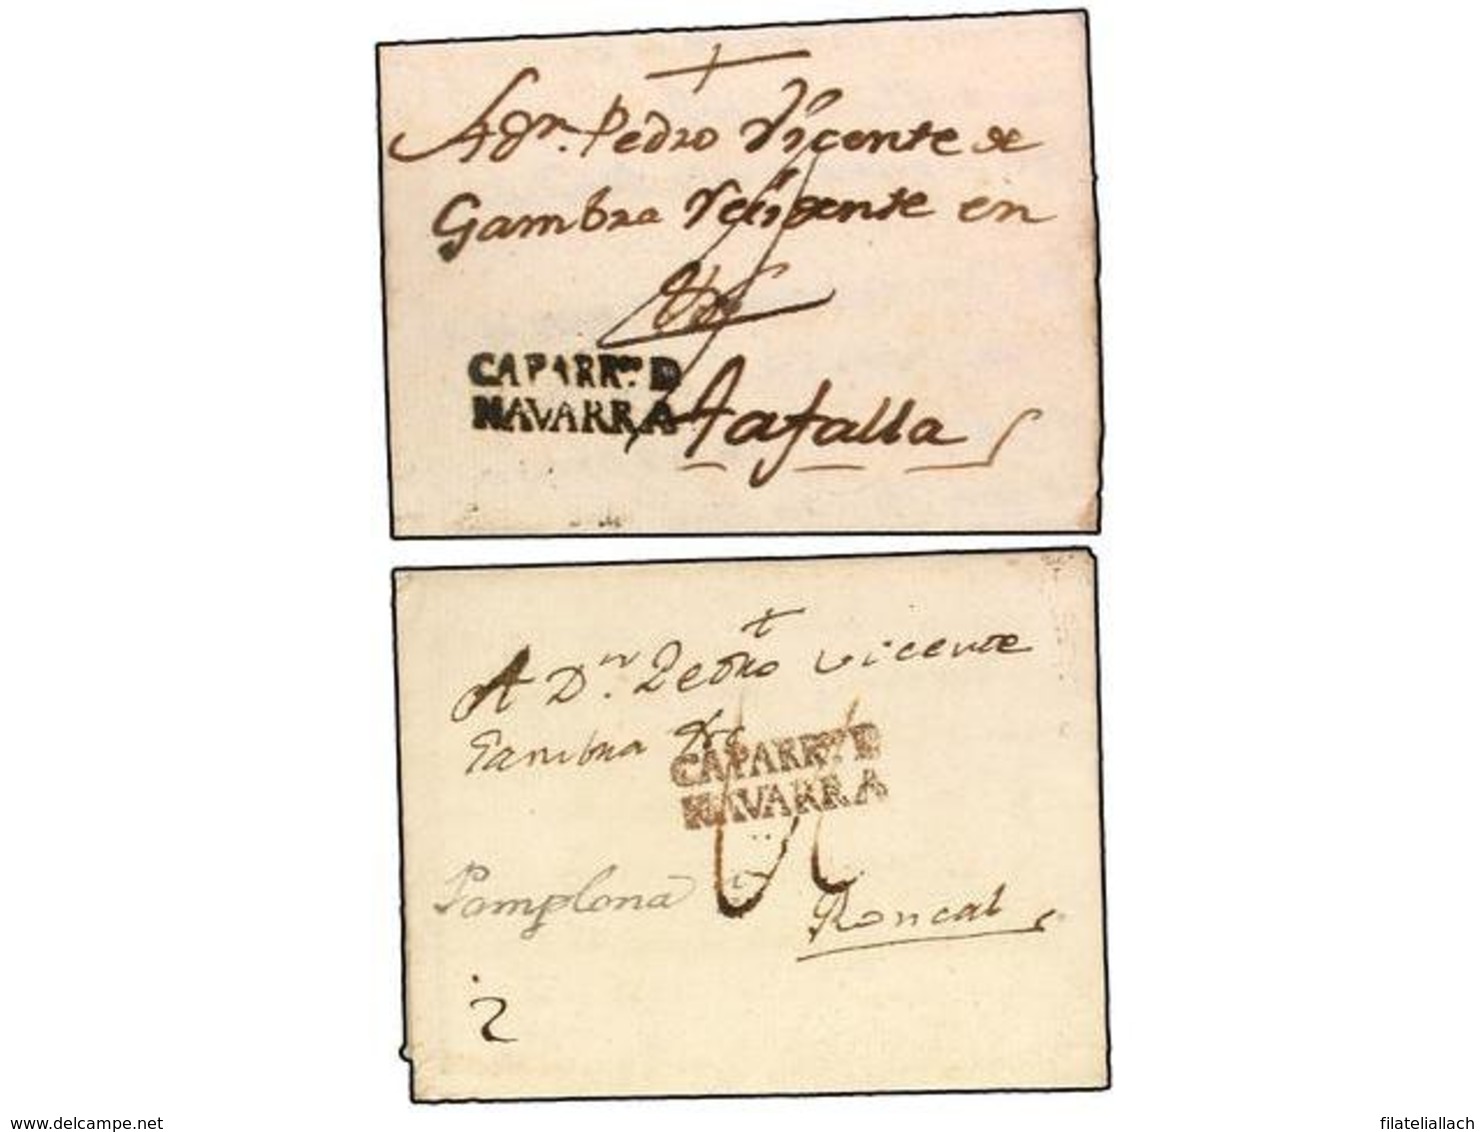 A Dn. Pedro Vicente de
Gambra Residente en
CAPARRº. D
NAVARRA
Tafalla
A Dn. Pedro Vicente
Gambra
CAPARRº. D
NAVARRA
Pamplona
Roncal
2
www.delcampe.net
filateliallach